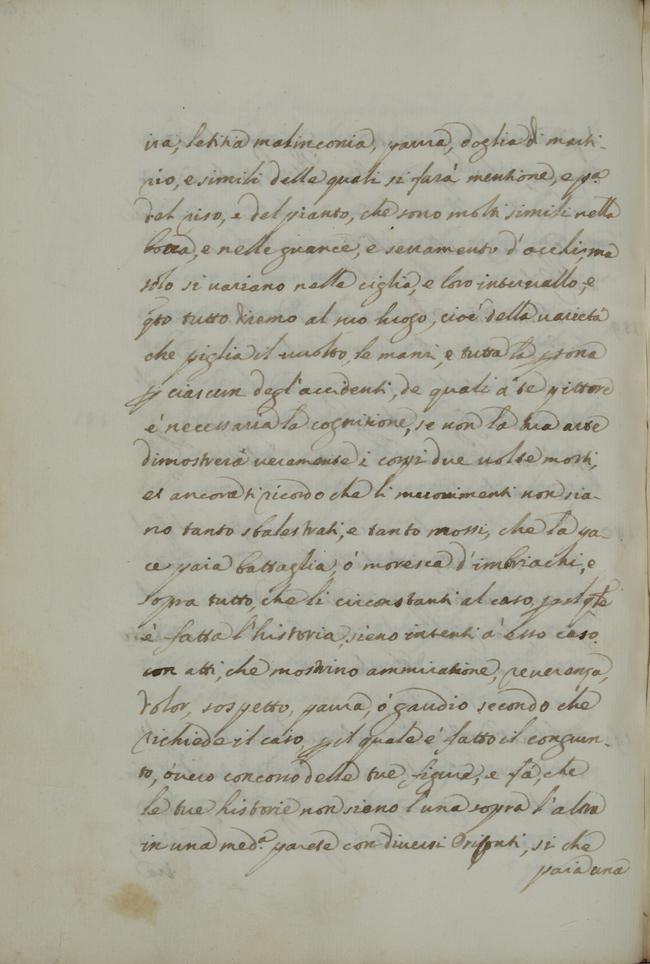 ira, letitia malinconia, paura, doglia di marti-
rio, e simili delle quali si farà mentione, e pa.
del riso, e del pianto, che sono molti simili nella
bocca, e nelle guance, e serramento d'occhi, ma
solo si variano nelle ciglia, e loro interuallo, e
qto tutto diremo al suo luogo, cioè della uarietà
che piglia il uuolto, le mani, e tutta la psona
p ciascun degl'accidenti, de quali a' te pittore
è necessaria la cognitione, se non la tua arte
dimostrerà ueramente i corpi due uolte morti,
et ancora ti ricordo che li mouimenti non sia-
no tanto sbalestrati, e tanto mossi, che la pa-
ce paia battaglia, ò moresca d'imbriachi, e
sopra tutto, che li circonstanti al caso, p il qle
è fatta l'historia, sieno intenti à esso caso
con atti, che mostrino ammiratione, reuerenza,
dolor, sospetto, paura, ò gaudio secondo che
richiede il caso, p il quale è fatto il congiun-
to, ò uero concorso delle tue figure, e fà, che
le tue historie non sieno l'una sopra l'altra
in una med.a parete con diuersi Orisonti, si che
paia una